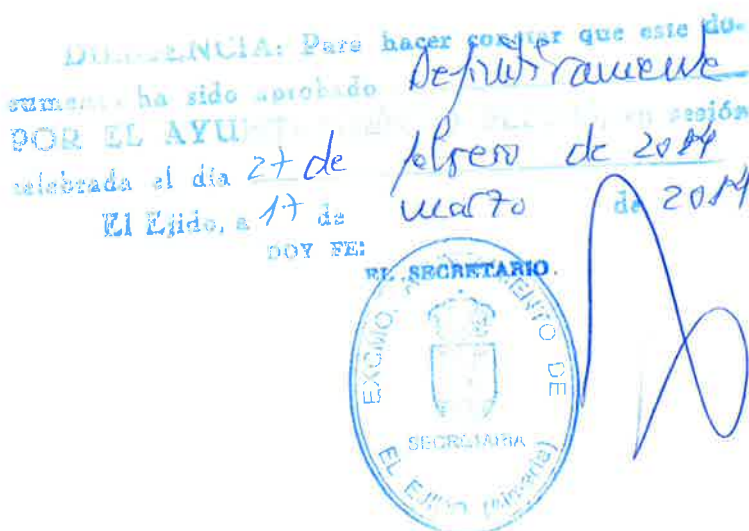 DILIGENCIA: Para hacer constar que este do-
cumento ha sido aprobado Definitivamente
POR EL AYUNTAMIENTO en sesión
celebrada el día 27 de febrero de 2014
El Ejido, a 17 de marzo de 2014
DOY FE:
EL SECRETARIO.
EXCMO. AYUNTAMIENTO DE
SECRETARIA
EL EJIDO (Almería)